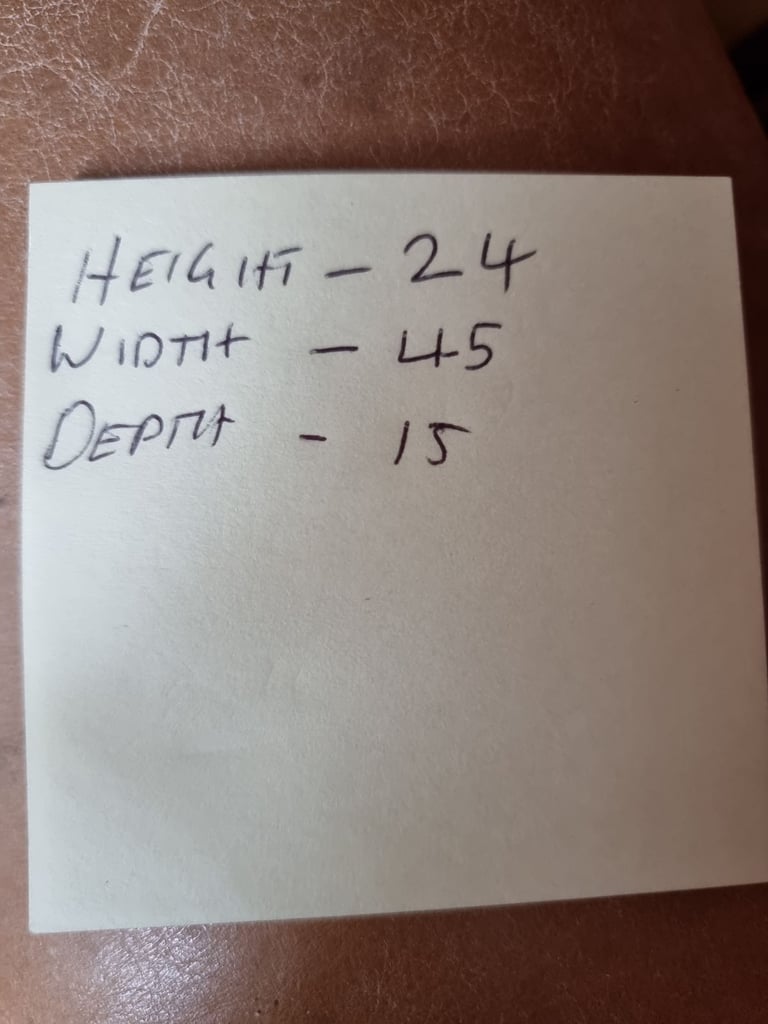 HEIGHT - 24
WIDTH - 45
DEPTH - 15